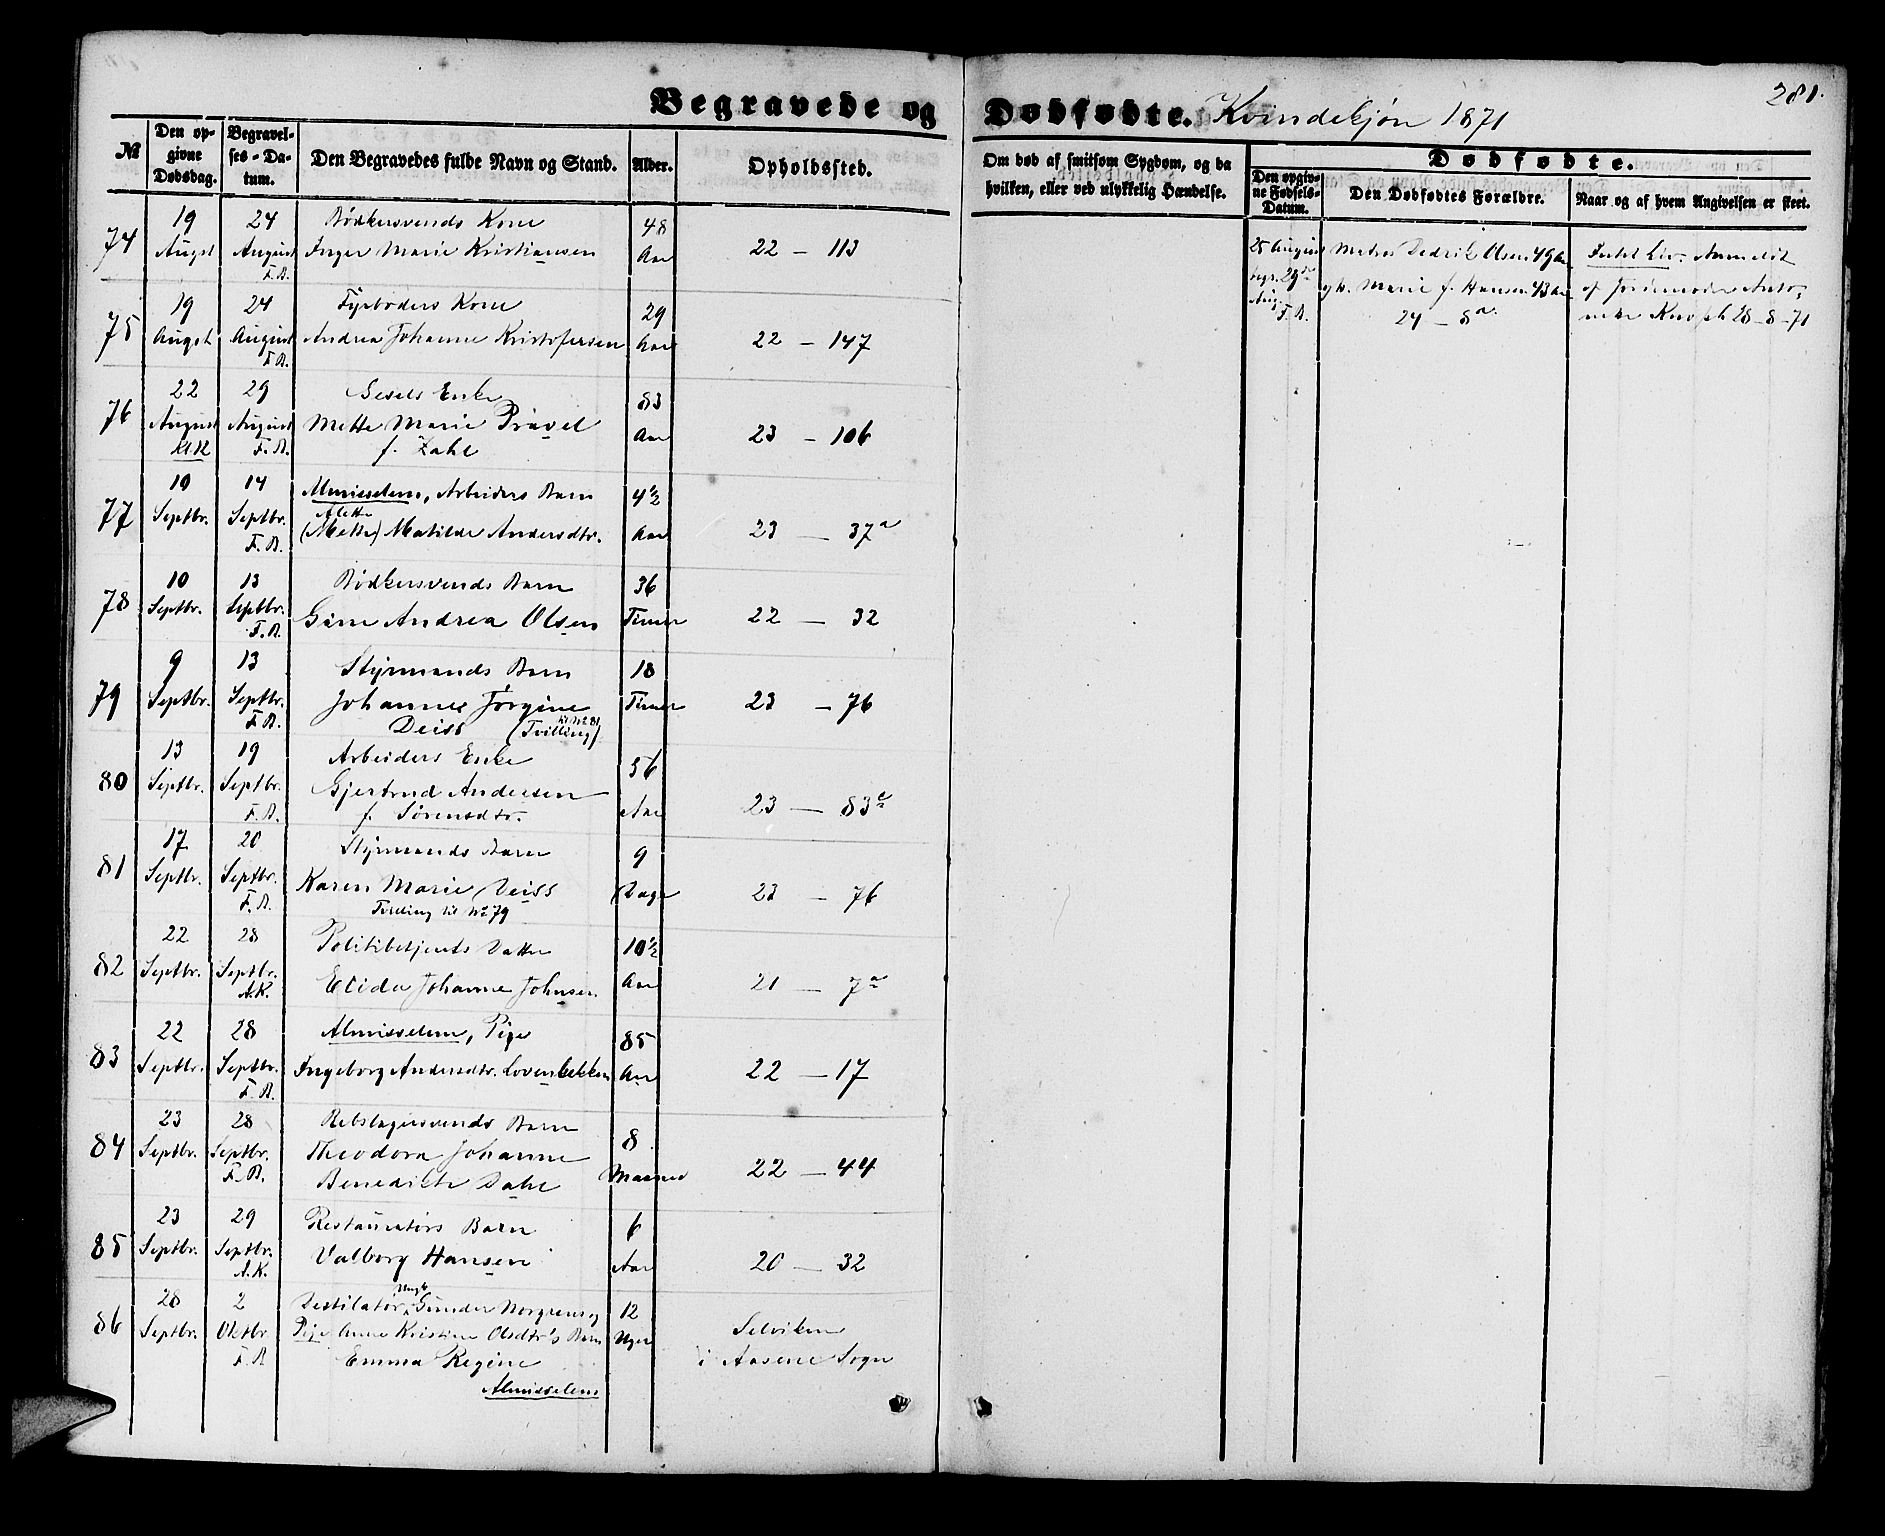 281.
Begravede og Dødfødte. Kvindekjøn 1871
№
Den opgivne Dødsdag.
Begravelses-Datum.
Den Begravedes fulde Navn og Stand.
Alder.
Opholdssted.
Om død af smitsom Sygdom, og da hvilken, eller ved ulykkelig Hændelse.
Dødfødte.
Den opgivne Fødsels-Datum.
Den Dødfødtes Forældre.
Naar og af hvem Angivelsen er skeet.
74 19 Augst 24 August F.B.
Bødkersvends Kone
Inger Marie Kristiansen
48 Aar
22 – 113
25 August begr. 29de Aug. F.B.
Olsen 49 Aar
Marie f. Hansen 43 Aar
24 – 8a
Anmeldt
af Jordmoder
28-8-71
75 19 Augst 24 August F.B.
Fyrbøders Kone
Andrea Johanne Kristofersen
29 Aar
22 – 147
76 22 August Kl.K 29 August F.B.
Enke
Mette Marie Prøvel
f. Zahl
83 Aar
23 – 106
77 10 Septbr. 14 Septbr. F.B.
Almisselem, Arbeiders Barn
Alette
(Mette) Matilde Andersdtr.
4½ Aar
23 – 37a
78 10 Septbr. 13 Septbr. F.B.
Bødkersvends Barn
Gine Andrea Olsen
36 Timer
22 – 32
79 9 Septbr. 13 Septbr. F.B.
Styrmands Barn
Johanne Jørgine
Deiss (Tvilling til No 81)
18 Timer
23 – 76
80 13 Septbr. 19 Septbr. F.B.
Arbeiders Enke
Gjertrud Andersen
f. Sørensdtr.
56 Aar
23 – 83c
81 17 Septbr. 20 Septbr. F.B.
Styrmands Barn
Karen Marie Deiss
Tvilling til No 79
9 Dage
23 – 76
82 22 Septbr. 28 Septbr. A.K.
Politibetjents Datter
Elida Johanne Johnsen
10½ Aar
21 – 7a
83 22 Septbr. 28 Septbr. F.B.
Almisselem, Pige
Ingeborg Andersdtr. Lovenbekken
85 Aar
22 – 17
84 23 Septbr. 28 Septbr. F.B.
Rebslagersvends Barn
Theodora Johanne
Benedikte Dahl
8 Maaneder
22 – 44
85 23 Septbr. 29 Septbr. A.K.
Restauratørs Barn
Valborg Hansen
6 Aar
20 – 32
86 28 Septbr. 2 Oktbr. F.B.
Destilatør, Ungk. Gunder Norgrens og
Pige Anne Kristine Olsdtr's Barn
Emma Regine
Almisselem
12 Uger
Selviken
i Aasene Sogn